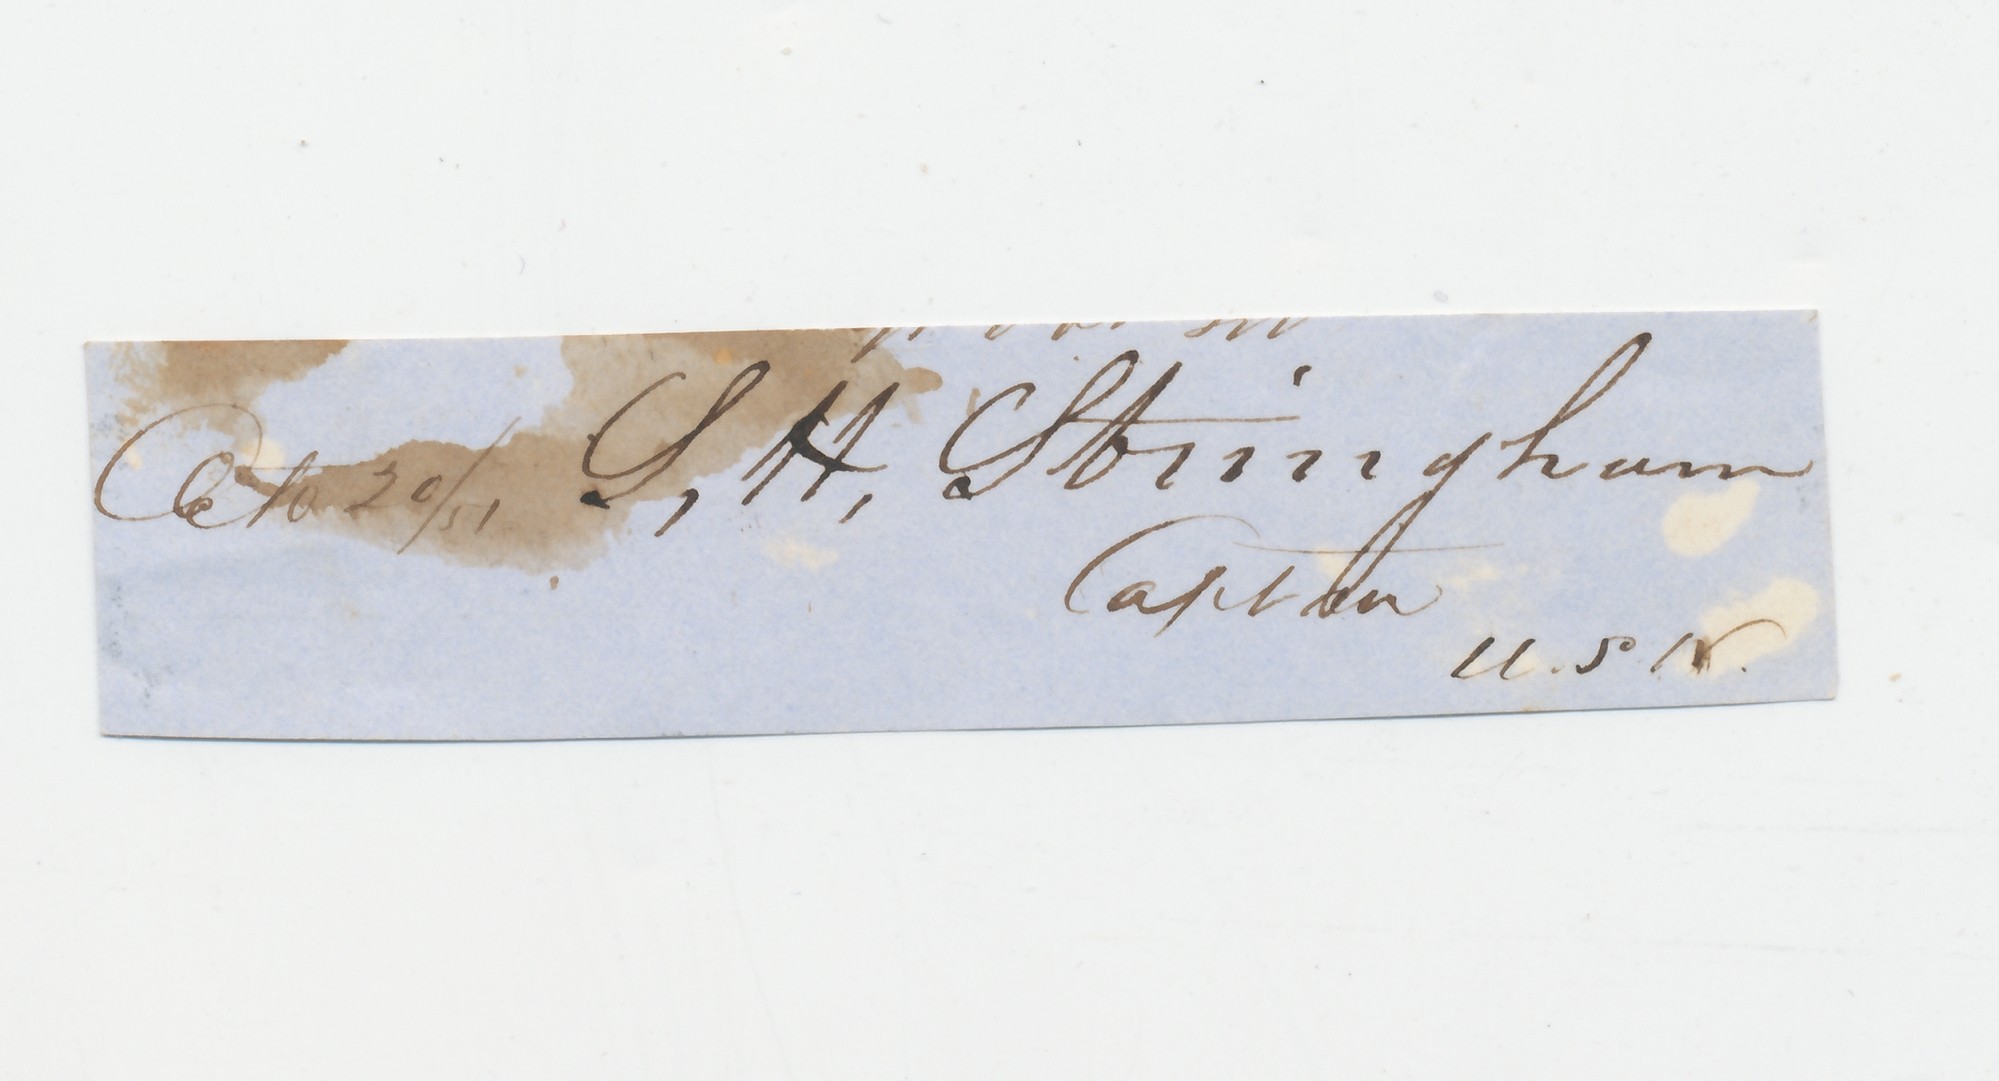 Octo 20/51, S, H, Stringham
Captain
U.S.N.